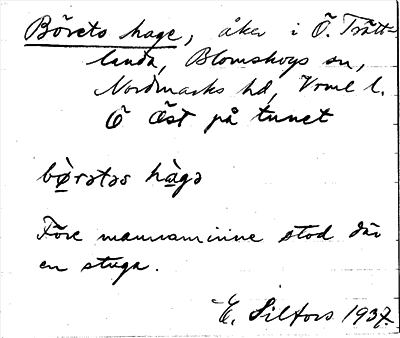 Börets hage, åker i Ö. Trätt-
landa, Blomskogs sn,
Nordmarks hd, Vrml l.
Ö Öst på tunet
børətəs hàgə
Före mannaminne stod där
en stuga.
E. Silfors 1937.